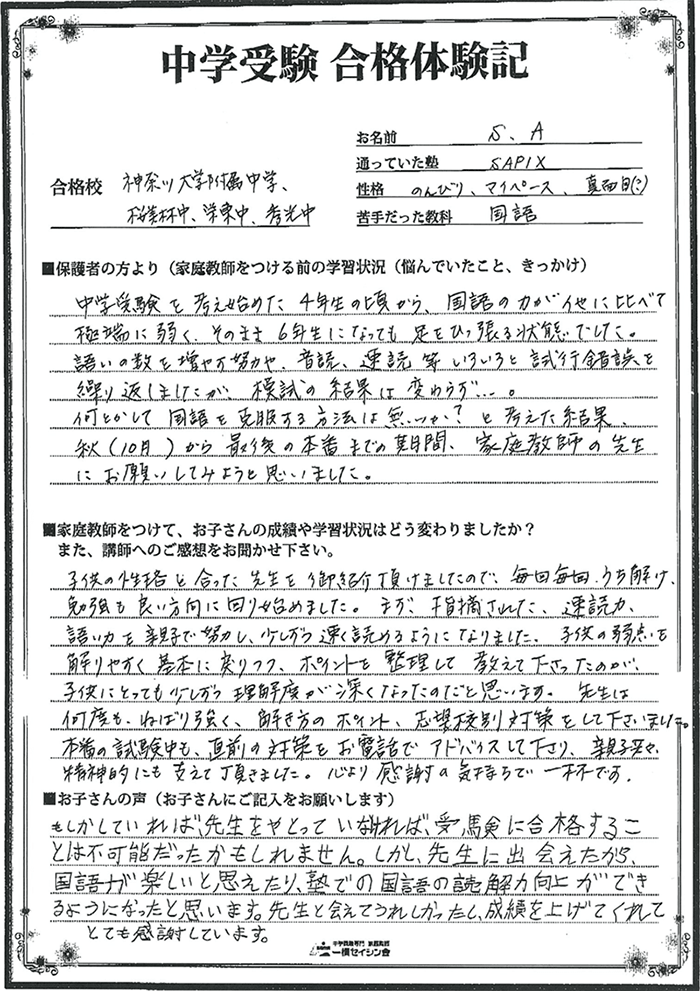 中学受験 合格体験記
お名前 S、A
通っていた塾 SAPIX
合格校 神奈川大学附属中学、
性格 のんびり、マイペース、真面目(?)
桜美林中、栄東中、秀光中
苦手だった教科 国語
■保護者の方より（家庭教師をつける前の学習状況（悩んでいたこと、きっかけ）
中学受験を考え始めた4年生の頃から、国語の力が他に比べて
極端に弱く、そのまま6年生になっても足をひっ張る状態でした。
語いの数を増やす努力や、音読、速読等いろいろと試行錯誤を
繰り返しましたが、模試の結果は変わらず…。
何とかして国語を克服する方法は無いか？と考えた結果、
秋（10月）から最後の本番までの期間、家庭教師の先生
にお願いしてみようと思いました。
■家庭教師をつけて、お子さんの成績や学習状況はどう変わりましたか？
また、講師へのご感想をお聞かせ下さい。
子供の性格と合った先生を御紹介頂けましたので、毎回毎回、うち解け、
勉強も良い方向に回り始めました。まず、指摘された、速読力、
語い力を親子で努力し、少しずつ速く読めるようになりました。子供の弱点を
解りやすく基本に戻りつつ、ポイントを整理して教えて下さったのが、
子供にとっても少しずつ理解度が深くなったのだと思います。先生は
何度も、ねばり強く、解き方のポイント、志望校別対策をして下さいました。
本番の試験中も、直前の対策をお電話でアドバイスして下り、親子共々、
精神的にも支えて頂きました。心より感謝の気持ちで一杯です。
■お子さんの声（お子さんにご記入をお願いします）
もしかしていれば、先生をやとっていなければ、受験に合格するこ
とは不可能だったかもしれません。しかし、先生に出会えたから、
国語が楽しいと思えたり、塾での国語の読解力向上ができ
るようになったと思います。先生と会えてうれしかったし、成績を上げてくれて
とても感謝しています。
中学受験専門 家庭教師
一橋セイシン会